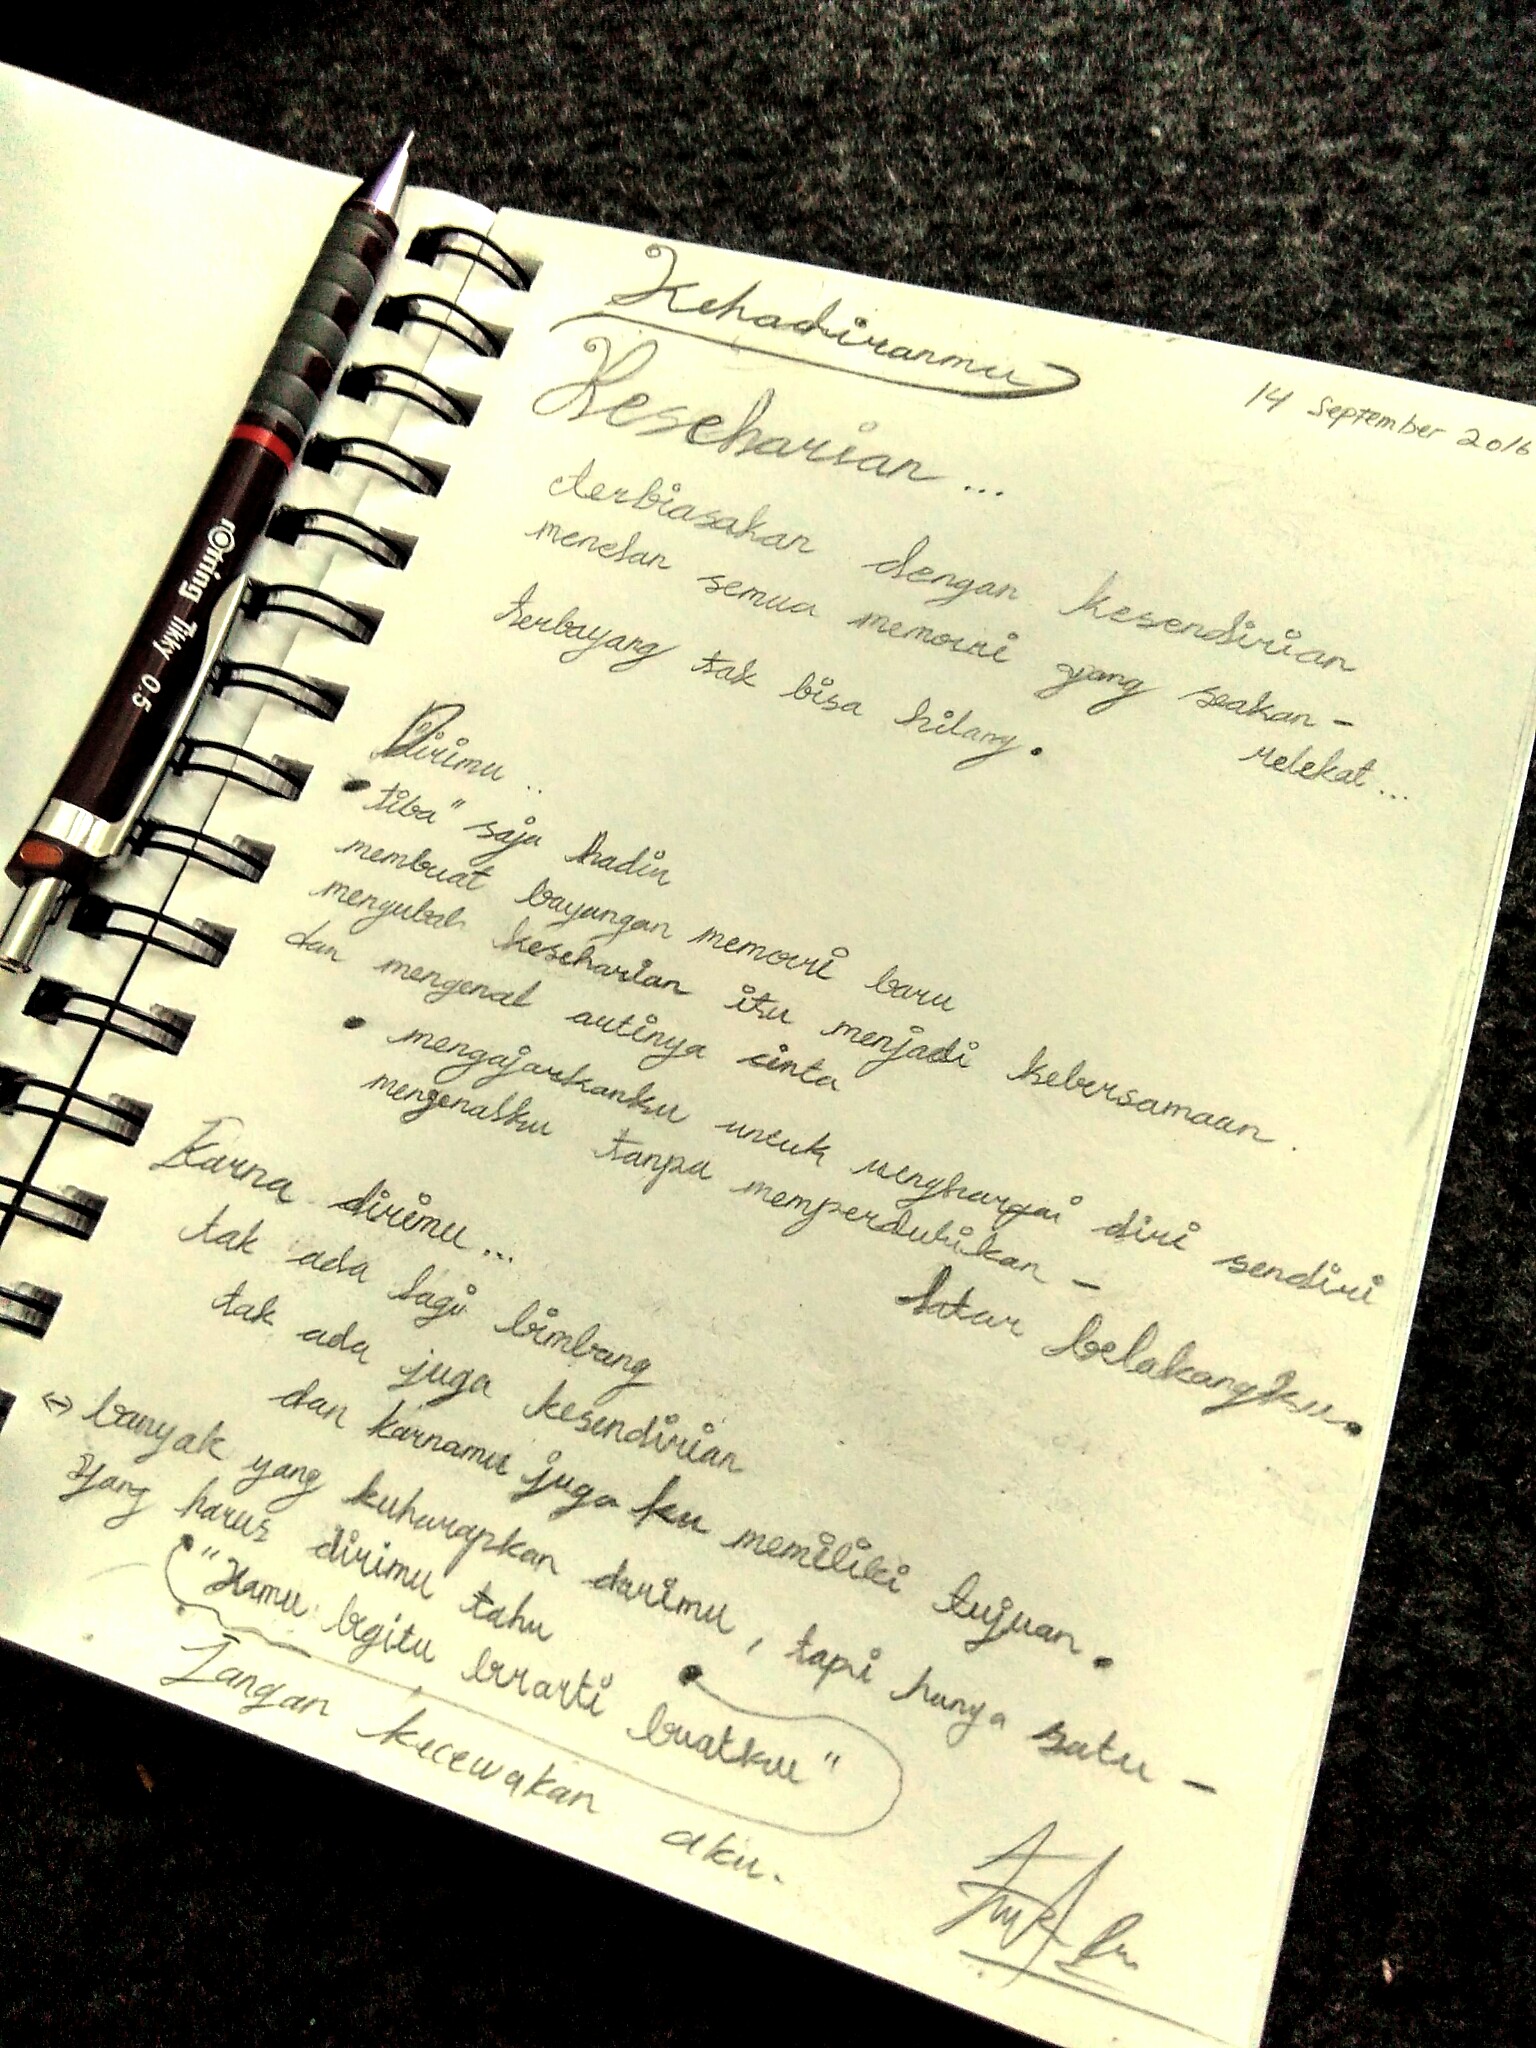 Kehadiranmu
14 September 2016
Keseharian ...
terbiasakan dengan kesendirian
menelan semua memori yang seakan -
relekat ...
terbayang tak bisa hilang .
Dirimu ..
• tiba" saja hadir
membuat bayangan memori baru
mengubah keseharian itu menjadi kebersamaan .
dan mengenal artinya cinta
• mengajarkanku untuk menghargai diri sendiri
mengenalku tanpa memperdulikan -
latar belakangku .
Karna dirimu ...
tak ada lagi bimbang
tak ada juga kesendirian
dan karnamu juga ku memiliki tujuan .
<-> banyak yang kuharapkan darimu , tapi hanya satu -
yang harus dirimu tahu
"Kamu bgitu brarti buatku"
Jangan kecewakan aku .
rOtring Tikky 0.5